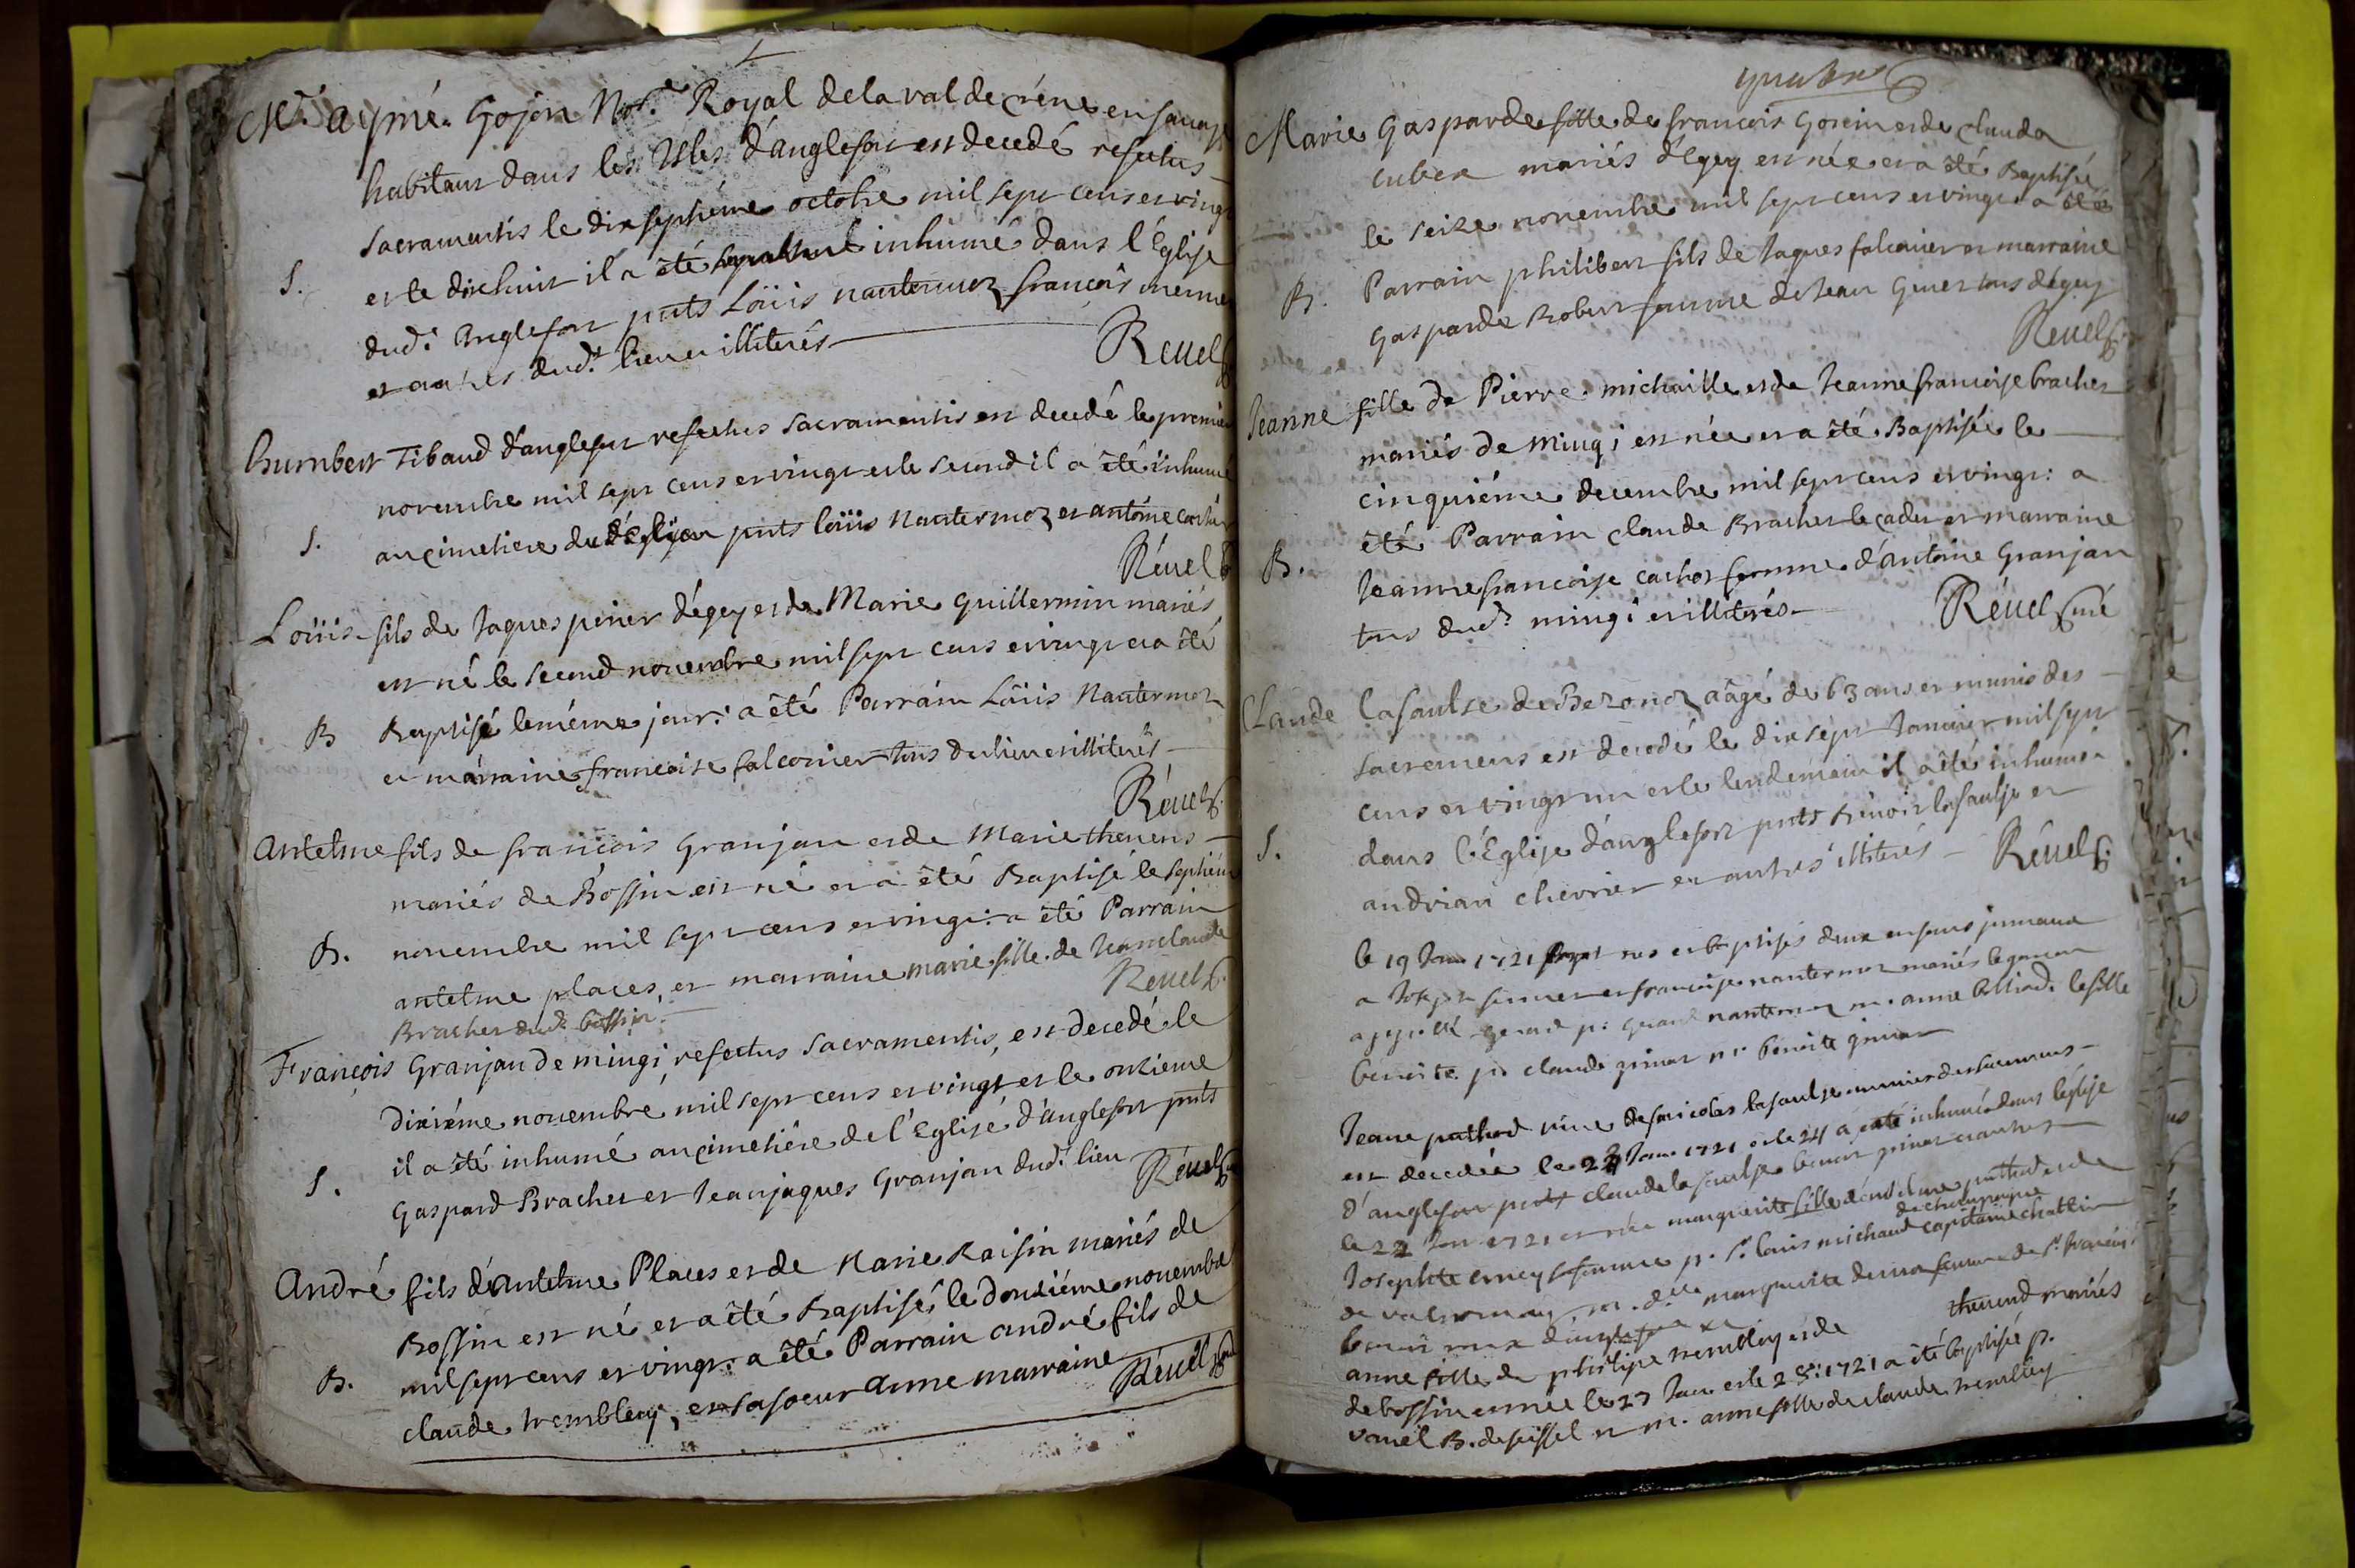 Mr. aymé Gojon Notre. Royal de la val de réne en savoye
habitant dans les Isles d'anglefort est decedé refectus
sacramentis le dix septiéme octobre mil sept cens et vingt
S. et le dixhuit il a été inhumé dans l'Eglise
dud. Anglefort pnts Loüis nantermoz françois
et autres dud.t lieu et illiterés
Réuel
Humbert Tibaud d'anglefort refectus sacramentis est decedé le premier
novembre mil sept cens et vingt et le second il a été inhumé
S. au çimetiere de pnts loüis Nantermoz et antoine cochet
Réuel
Loüis fils de Jaques perier d'égey et de Marie Guillermin mariés
est né le second novembre mil sept cens et vingt et a été
B Baptisé le méme jour: a été Parrain Loüis Nantermoz
et marraine francoise falconier tous du lieu et illiterés
Réuel
Antelme fils de francois Granjan et de Marie thevens
mariés de Bossin est né et a été Baptisé le septiéme
B. novembre mil sept cens et vingt: a été Parrain
antelme places, et marraine marie fille de Jean claude
Bracher dud. bossin.
Réuel
François Granjan de mingi, refectus sacramentis, est decedé le
dixiéme novembre mil sept cens et vingt et le onzieme
il a été inhumé au çimetiére de l'Eglise d'anglefort pnts
S. Gaspard Bracher et Jean jaques Granjan dud. lieu
Réuel
André fils d'antelme Places et de Marie Raisin mariés de
Bossin est né et a été Baptisé, le douziéme novembre
B. mil sept cens et vingt: a été Parrain André fils de
claude trembley, et sa soeur Anne marraine
Réuel
Marie Gasparde fille de francois Gojoin et de clauda
cubex mariés d'Egey est née et a été Baptisée
le seize novembre mil sept cens et vingt: a été
B. Parrain philibert fils de Jaques falconier et marraine
Gasparde Robert femme de Jean Ginet tous d'égey
Réuel
Jeanne fille de Pierre michaille et de Jeanne francoise bracher
mariés de mingi est née et a été Baptisée le
cinquiéme decembre mil sept cens et vingt: a
été Parrain claude Bracher le cadet et marraine
B. Jeanne francoise cochot femme d'antoine Granjan
tous dud. mingi et illiterés
Réuel curé
Claude lasaulse de Bezonoz aâgé de 63 ans et munis des
sacremens est decedé le dix sept Janvier mil sept
cens et vingt un et le lendemain il a été inhumé
S. dans l'Eglise d'anglefort pnts benoit lasaulse et
andrian chevrier et autres illiterés
Réuel
le 19 Janv 1721 nés et baptisés deux enfans jumeaux
a et francoise nantermoz mariés le garcon
appellé gerard p: gerard nantermoz m. anne la fille
benoite p. claude ginet m. benoite ginet
Jeane pathod vive de nicolas lasaulse munies des sacremens
est decedée le 23 Janv 1721 et le 24 a été inhumée dans l'église
d'anglefort pnts claude lasaulse benoit et autres
le 22 Janv 1721 est née marguerite fille d'antelme pathod et de
Josephte sa femme p. Sr. louis michaud capitaine
de m. d.lle marguerite femme de Sr. francois
anne fille de philipe trembley et de thevend mariés
de bossin est née le 27 Janv et le 28: 1721 a été baptisée p.
B. de seissel et m. anne fille de claude trembley